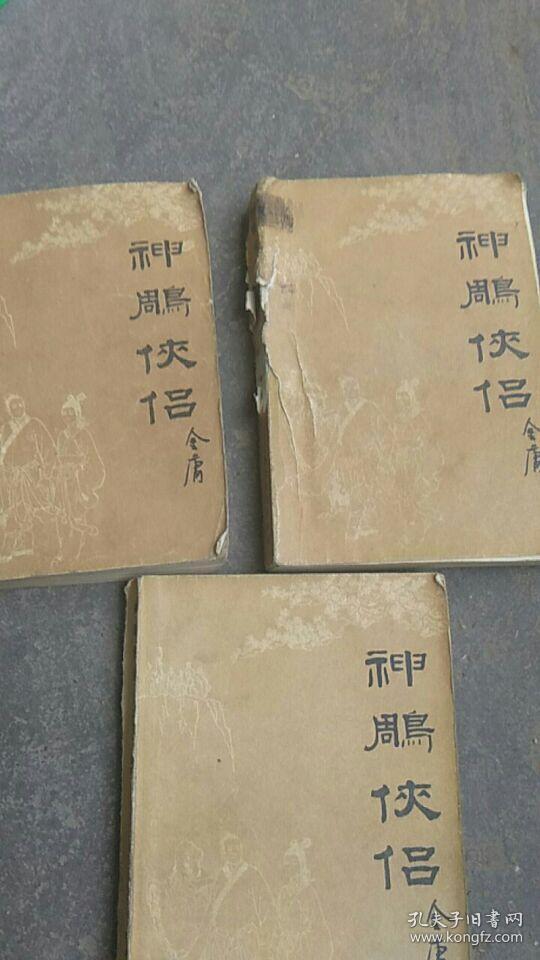 神鵰俠侶
金庸
神鵰俠侶
金庸
神鵰俠侶
金庸
孔夫子旧书网
www.kongfz.com